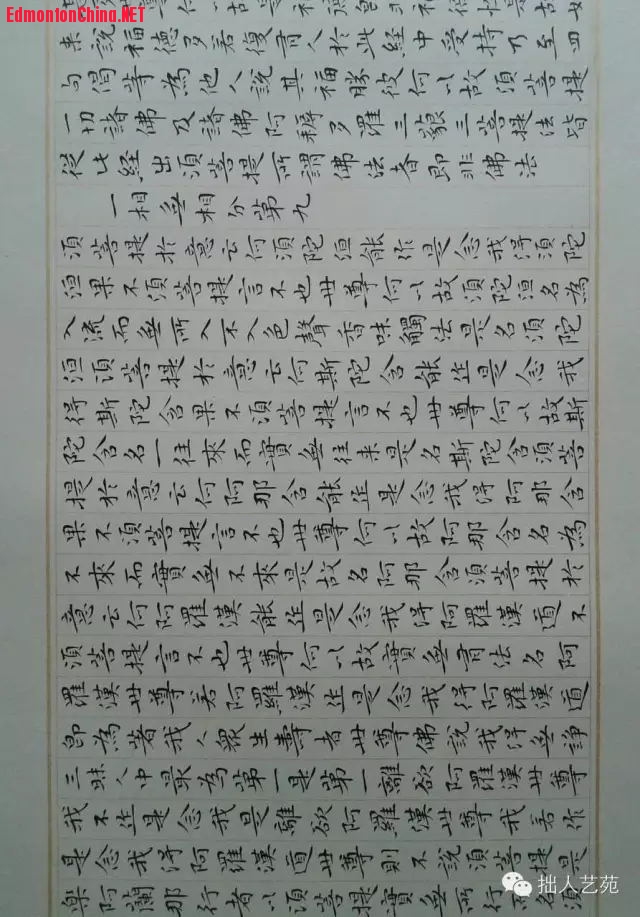 EdmontonChina.NET
来說福德多若復有人於此経中受持乃至四
句偈等為他人說其福勝彼何以故須菩提
一切諸佛及諸佛阿耨多羅三藐三菩提法皆
従此経出須菩提所謂佛法者即非佛法
一相無相分第九
須菩提於意云何須陀洹能作是念我得須陀
洹果不須菩提言不也世尊何以故須陀洹名為
入流而無所入不入色聲香味觸法是名須陀
洹須菩提於意云何斯陀含能作是念我
得斯陀含果不須菩提言不也世尊何以故斯
陀含名一往來而實無往来是名斯陀含須菩
提於意云何阿那含能作是念我得阿那含
果不須菩提言不也世尊何以故阿那含名為
不來而實無不來是故名阿那含須菩提於
意云何阿羅漢能作是念我得阿羅漢道不
須菩提言不也世尊何以故實無有法名阿
羅漢世尊若阿羅漢作是念我得阿羅漢道
即為著我人衆生壽者世尊佛說我得無諍
三昧人中最為第一是第一離欲阿羅漢世尊
我不作是念我是離欲阿羅漢世尊我若作
是念我得阿羅漢道世尊則不說須菩提是
樂阿蘭那行者以須菩提實無所行
拙人艺苑